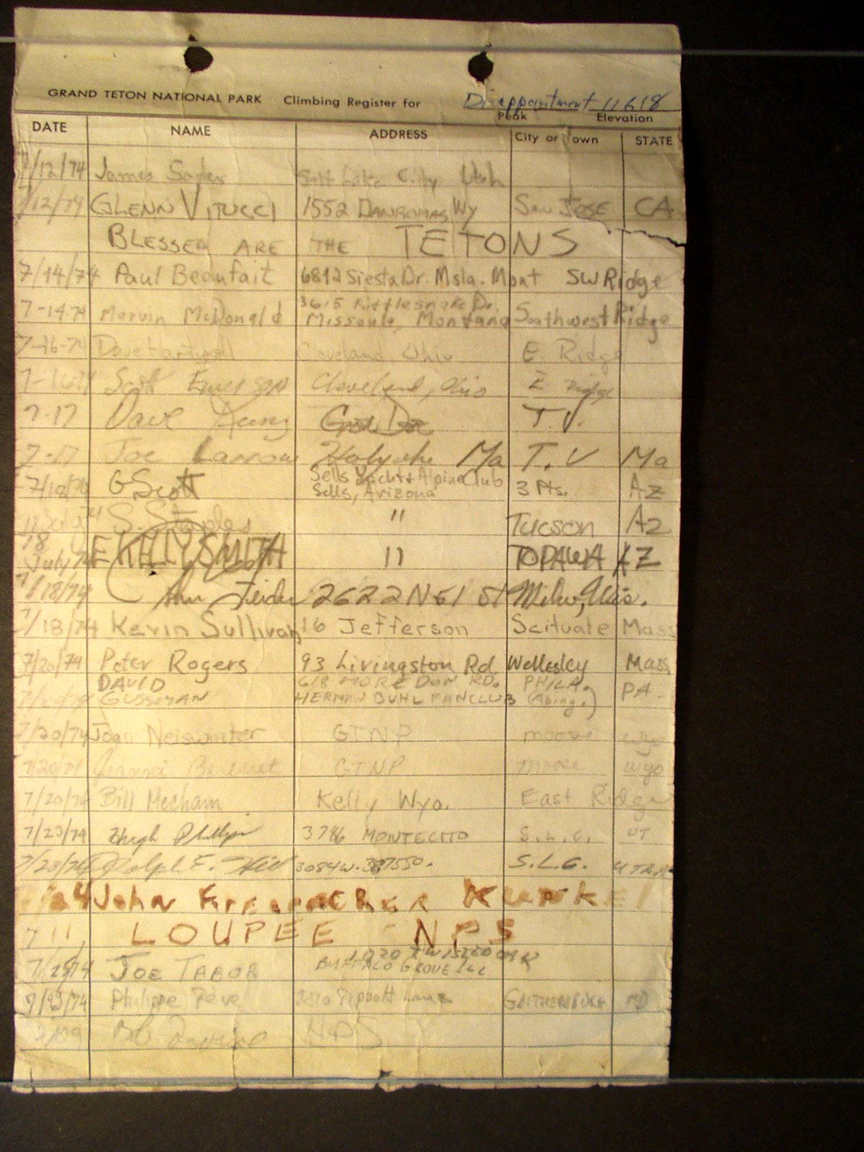 GRAND TETON NATIONAL PARK Climbing Register for Disappointment 11618
Peak Elevation
DATE NAME ADDRESS City or Town STATE
7/12/74 James Salt Lake City Utah
7/12/74 GLENN VITUCCI 1552 Wy SAN JOSE CA
BLESSED ARE THE TETONS
7/14/74 Paul Beaufait 6812 Siesta Dr. Msla. Mont SW Ridge
7-14-74 Marvin McDonald 3615 Rattlesnake Dr. Missoula, Montana Southwest Ridge
7-16-74 Dave Cleveland Ohio E. Ridge
7-16-74 Scott Cleveland, Ohio E ridge
7-17 Dave T.V.
7-17 Joe Holyoke Ma T.V Ma
7/18/74 G Scott Sells Yacht & Alpine Club Sells, Arizona 3 Pts. AZ
S. Staples " Tucson AZ
18 July 74 E KELLY SMITH " TOPAWA AZ
7/18/74 2622 N 61 St
7/18/74 Kevin Sullivan 16 Jefferson Scituate Mass
7/20/74 Peter Rogers 93 Livingston Rd Wellesley Mass
DAVID GUSSMAN 618 MOREDON RD. HERMAN BUHL FANCLUB PHILA. (Abing.) PA.
7/20/74 Joan Neiswinter GTNP moose wyo
7/20/74 GTNP moose wyo
7/20/74 Bill Mecham Kelly Wyo. East Ridge
7/23/74 Hugh Phillips 3786 MONTECITO S.L.C. UT
7/23/74 Ralph F. S.L.C. UTAH
24 John Kunkel
7 " LOUPEE NPS
JOE TABOR BUFFALO GROVE ILL
Philippe GAITHERSBURG MD
Bob NPS